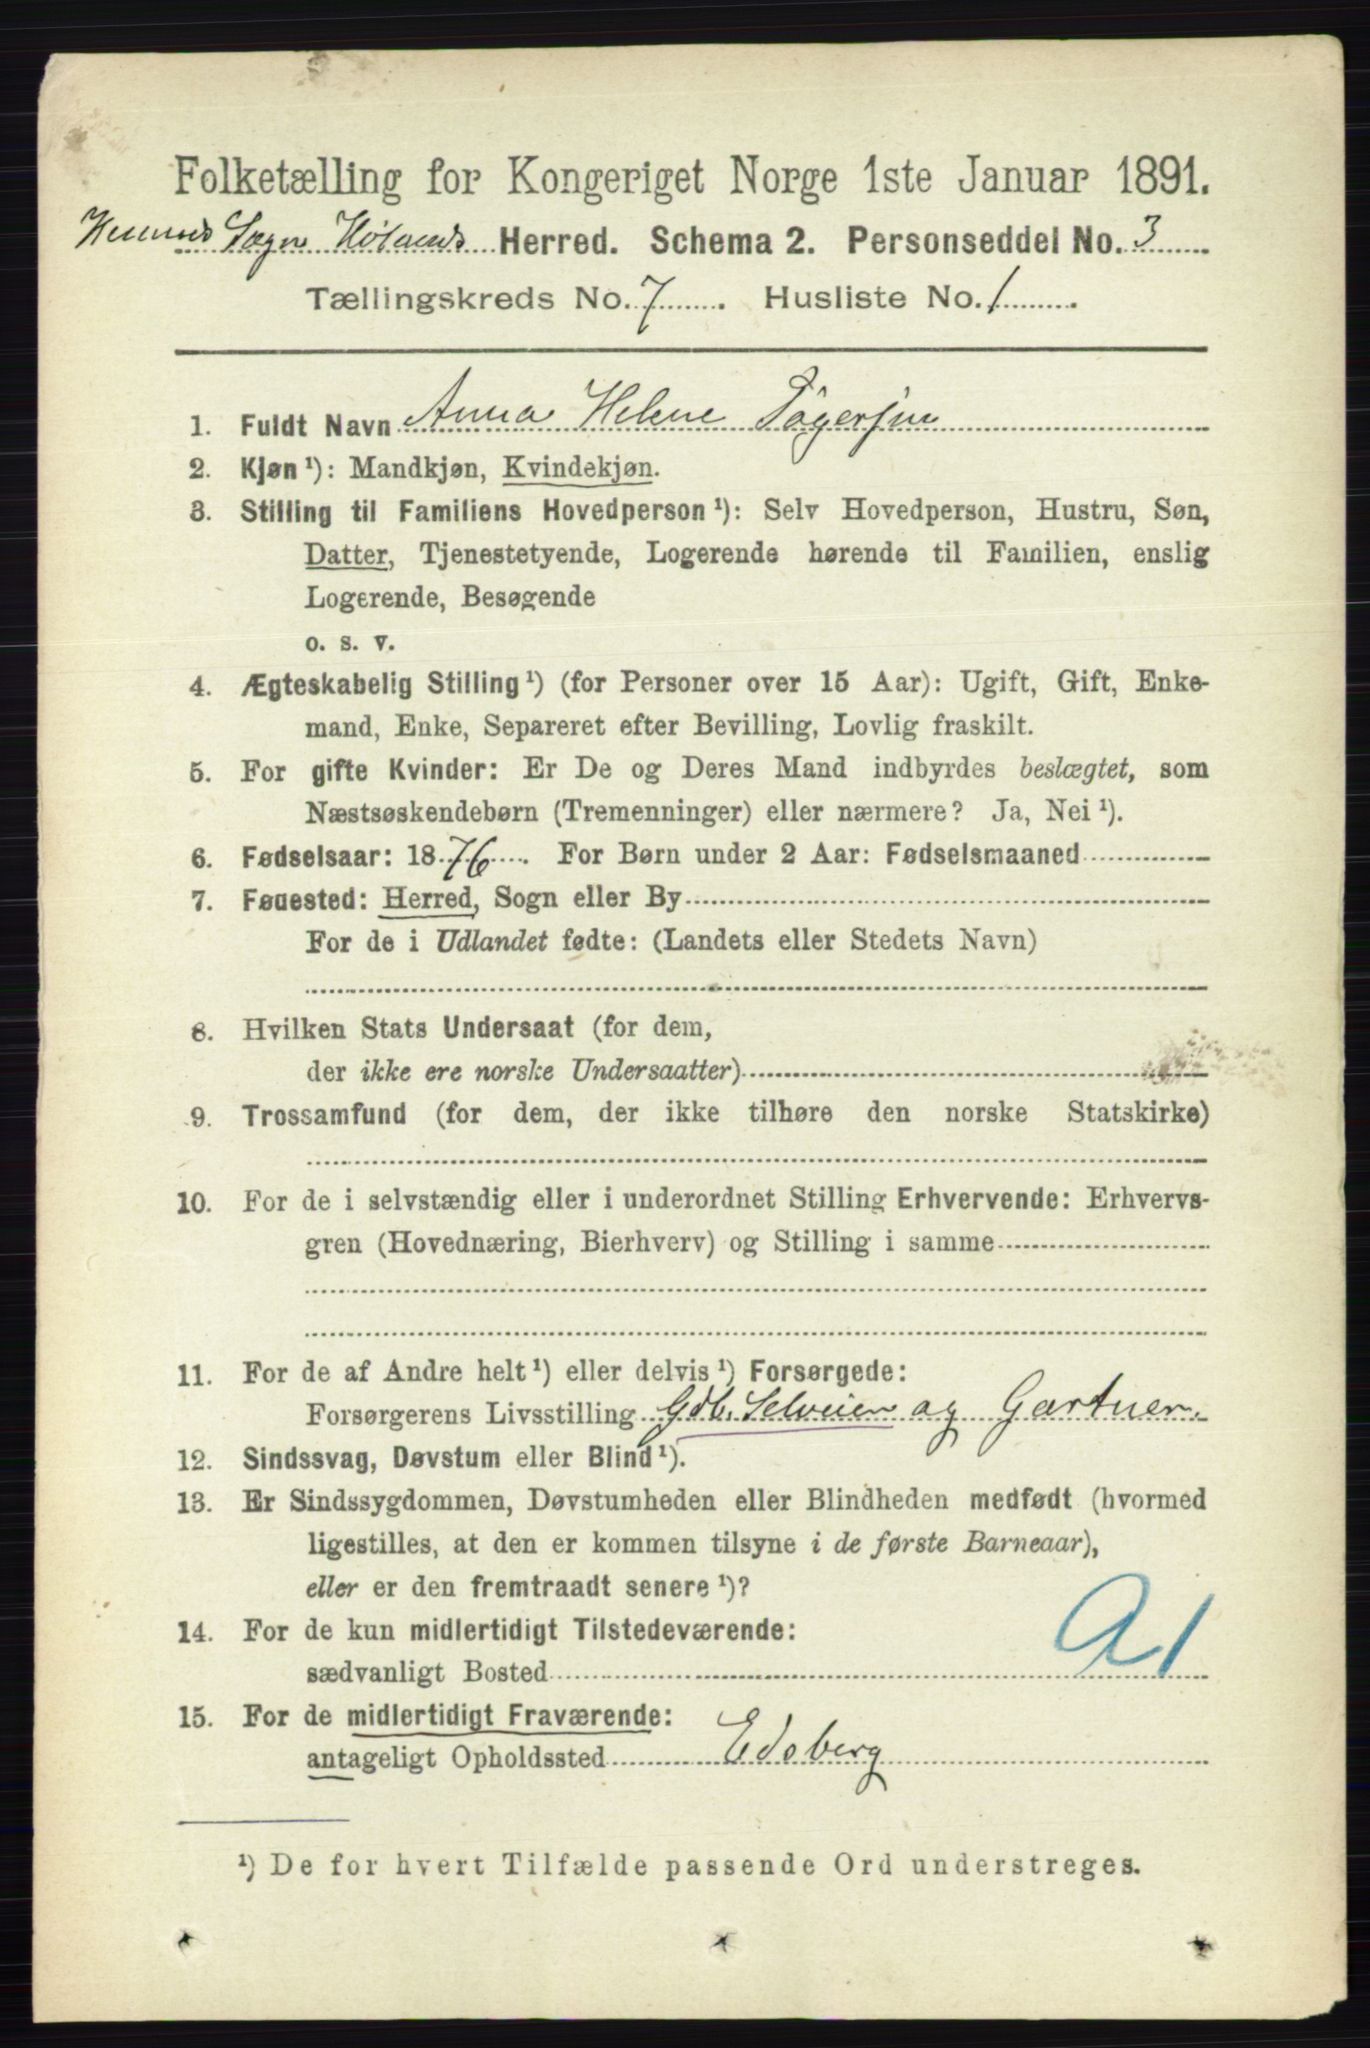 Folketælling for Kongeriget Norge 1ste Januar 1891.
Sogn Hølands Herred. Schema 2. Personseddel No. 3
Tællingskreds No. 7. Husliste No. 1.
1. Fuldt Navn Anna Helene
2. Kjøn ¹): Mandkjøn, Kvindekjøn.
3. Stilling til Familiens Hovedperson ¹): Selv Hovedperson, Hustru, Søn,
Datter, Tjenestetyende, Logerende hørende til Familien, enslig
Logerende, Besøgende
o. s. v.
4. Ægteskabelig Stilling ¹) (for Personer over 15 Aar): Ugift, Gift, Enke-
mand, Enke, Separeret efter Bevilling, Lovlig fraskilt.
5. For gifte Kvinder: Er De og Deres Mand indbyrdes beslægtet, som
Næstsøskendebørn (Tremenninger) eller nærmere? Ja, Nei ¹).
6. Fødselsaar: 1876. For Børn under 2 Aar: Fødselsmaaned
7. Føuested: Herred, Sogn eller By
For de i Udlandet fødte: (Landets eller Stedets Navn)
8. Hvilken Stats Undersaat (for dem,
der ikke ere norske Undersaatter)
9. Trossamfund (for dem, der ikke tilhøre den norske Statskirke)
10. For de i selvstændig eller i underordnet Stilling Erhvervende: Erhvervs-
gren (Hovednæring, Bierhverv) og Stilling i samme
11. For de af Andre helt ¹) eller delvis ¹) Forsørgede:
Forsørgerens Livsstilling Gdb. Selveier og Gartner.
12. Sindssvag, Døvstum eller Blind ¹).
13. Er Sindssygdommen, Døvstumheden eller Blindheden medfødt (hvormed
ligestilles, at den er kommen tilsyne i de første Barneaar),
eller er den fremtraadt senere ¹)?
14. For de kun midlertidigt Tilstedeværende:
sædvanligt Bosted
15. For de midlertidigt Fraværende:
antageligt Opholdssted Edsberg
¹) De for hvert Tilfælde passende Ord understreges.